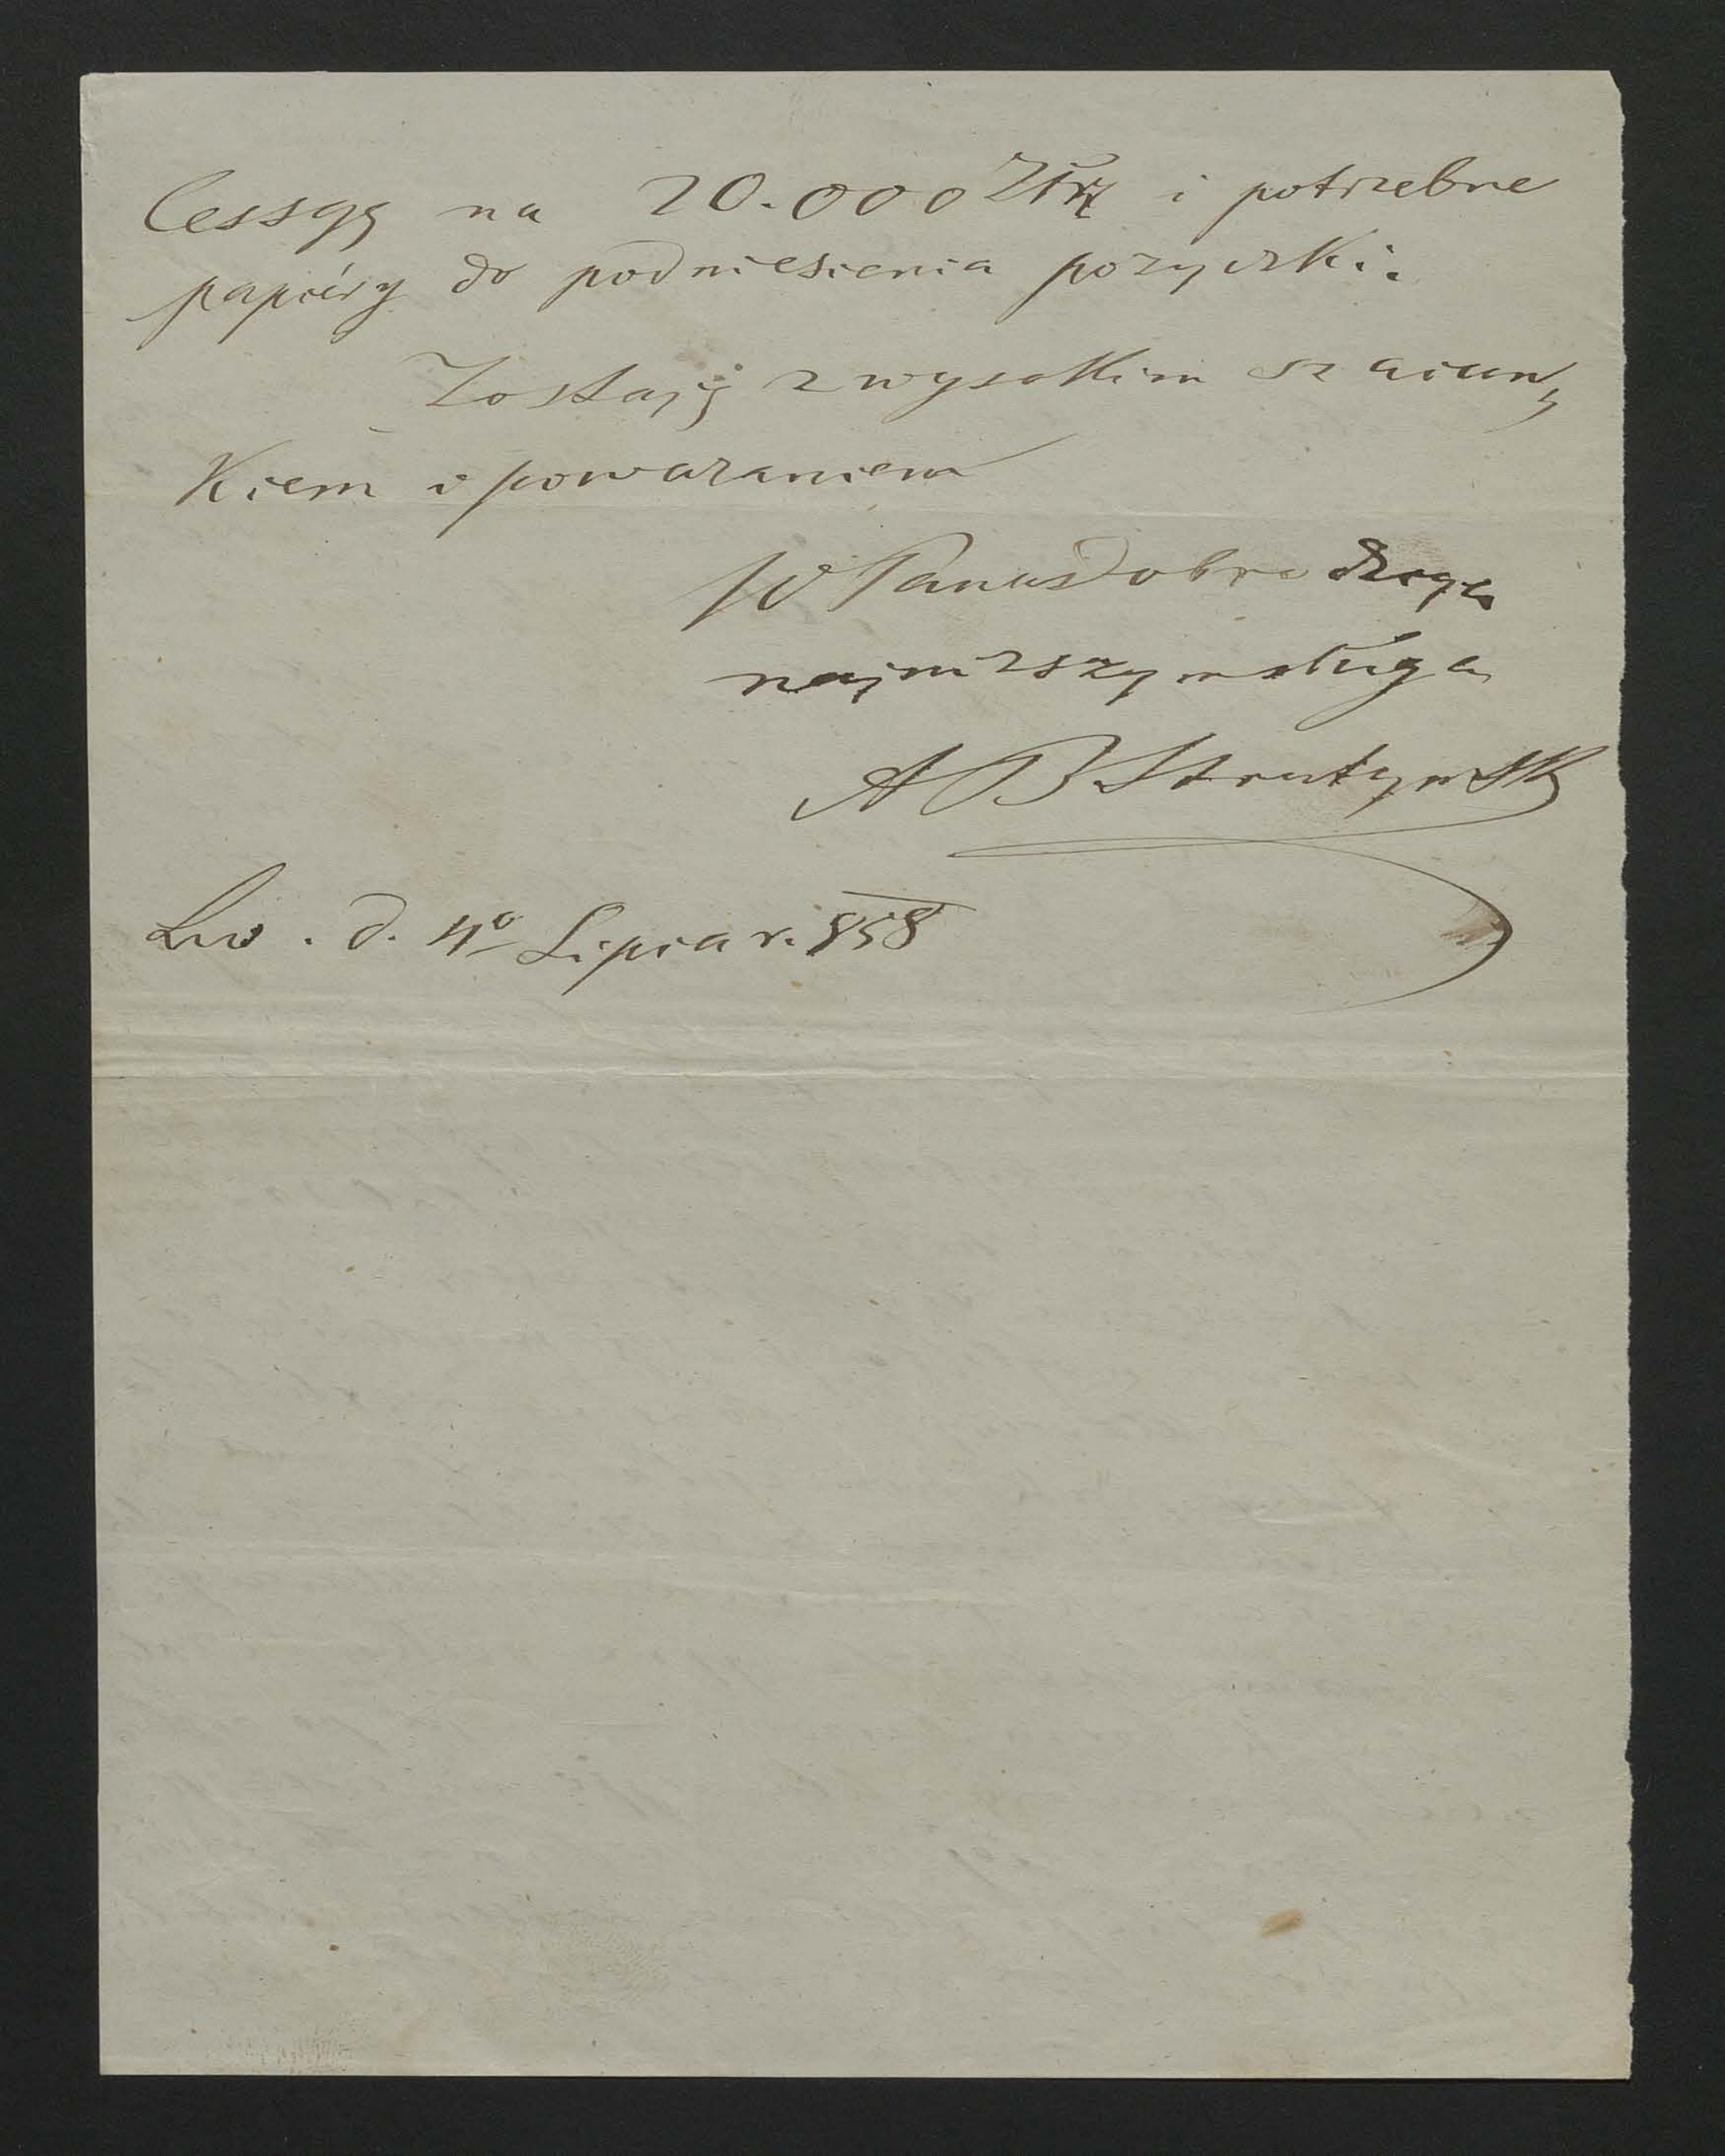 Cessyę na 20.000 Złr i potrzebne
papiéry do podniesienia pozyczki.
Zostaję z wysokim szacun,
kiem i powazaniem
W Pana Dobrodzieja
najnizszym sługą
A B Strutyński
Lw. d. 4º Lipca r. 858